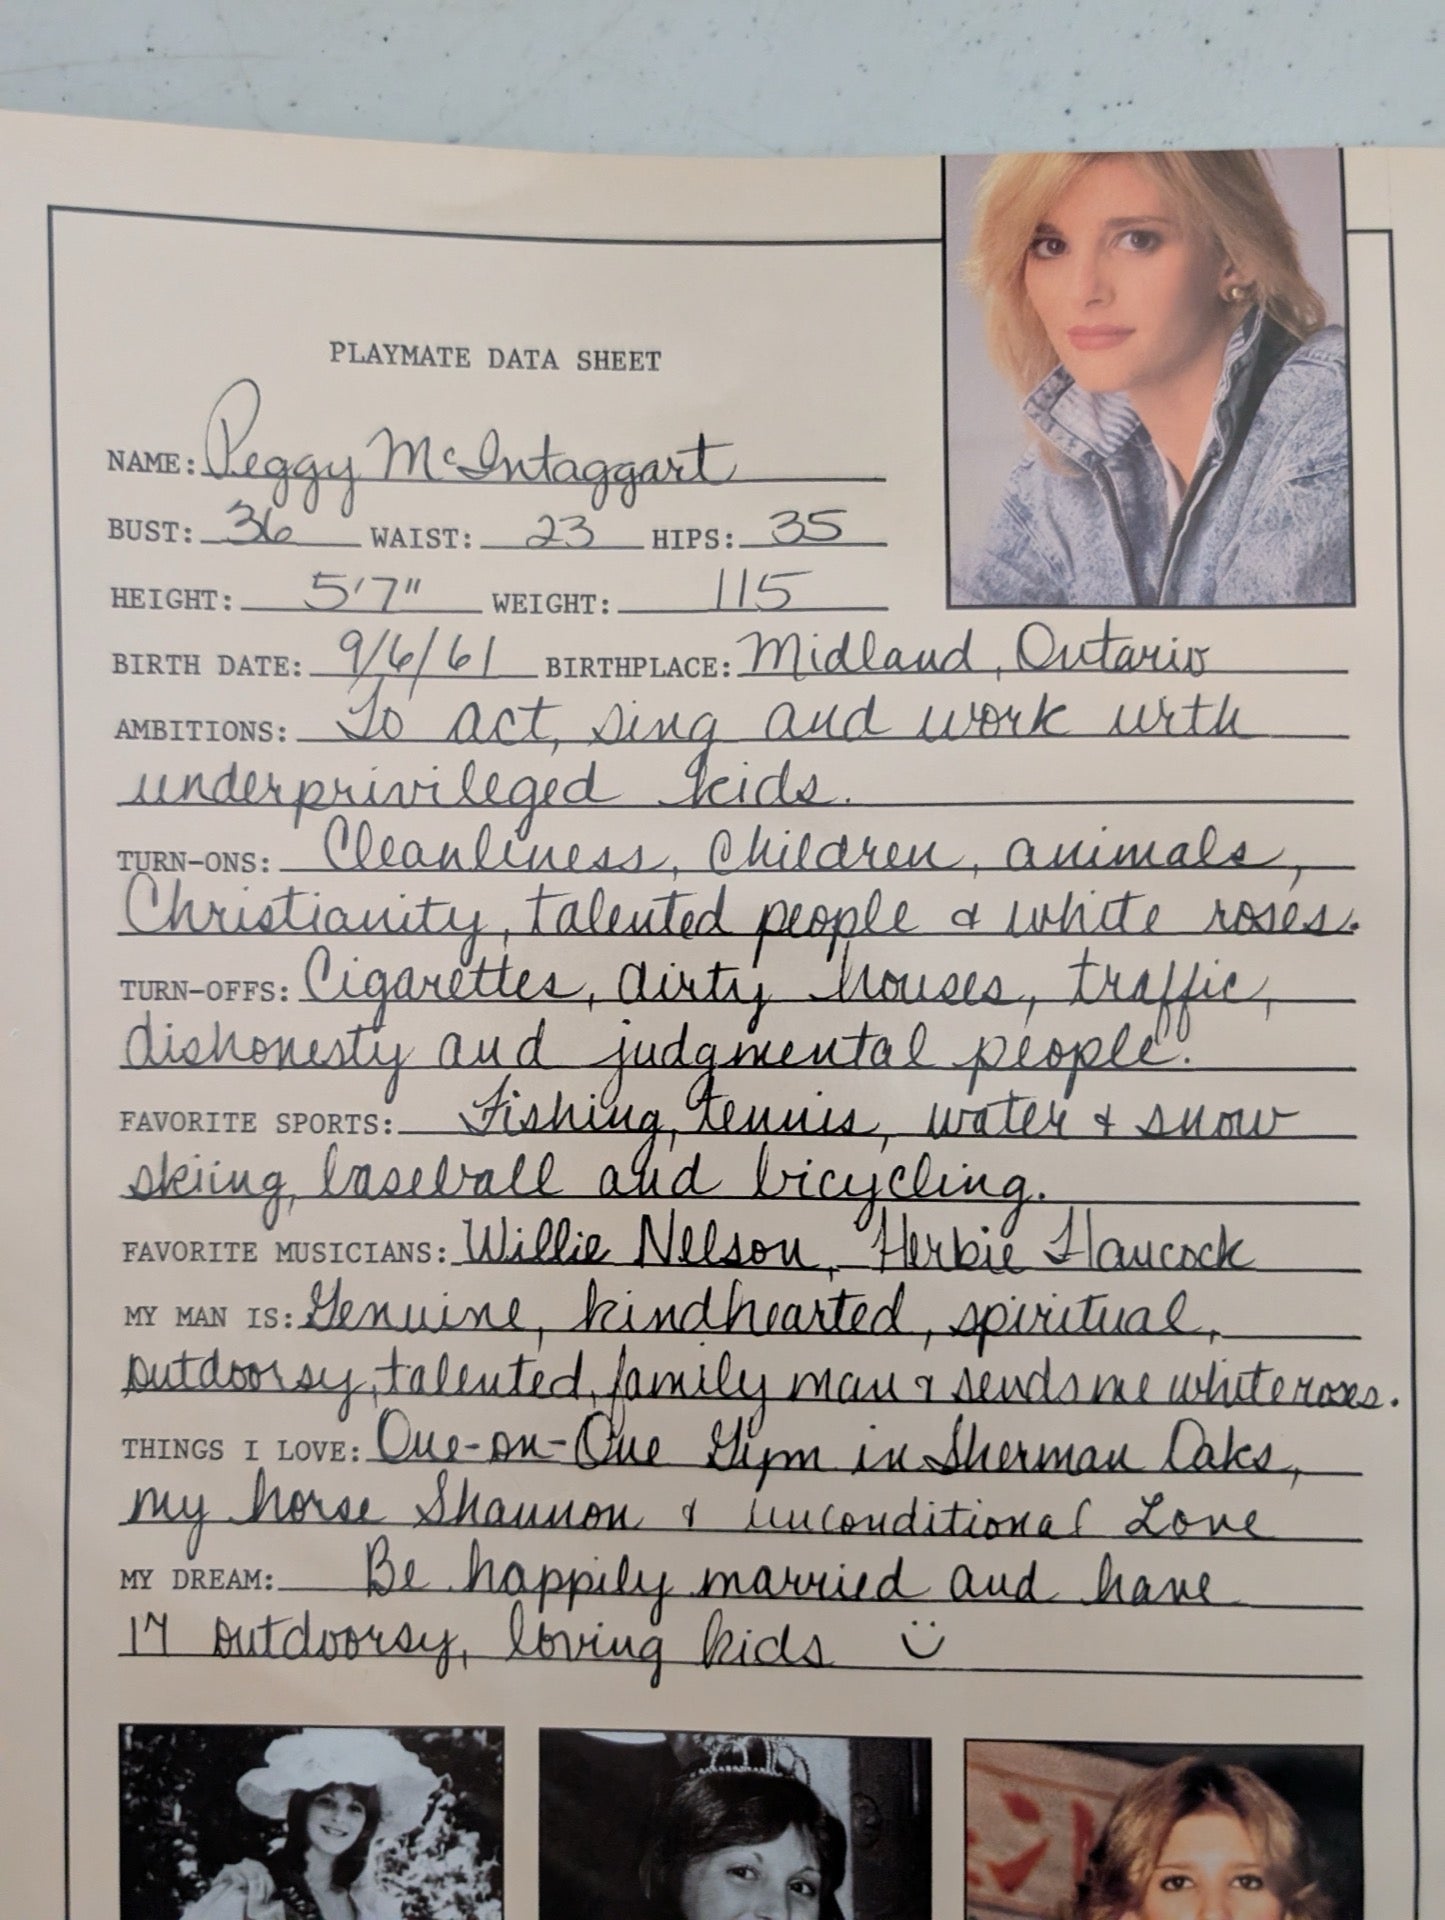 PLAYMATE DATA SHEET
NAME: Peggy McIntaggart
BUST: 36 WAIST: 23 HIPS: 35
HEIGHT: 5'7" WEIGHT: 115
BIRTH DATE: 9/6/61 BIRTHPLACE: Midland, Ontario
AMBITIONS: To act, sing and work with
underprivileged kids.
TURN-ONS: Cleanliness, Children, animals,
Christianity, talented people & white roses.
TURN-OFFS: Cigarettes, dirty houses, traffic,
dishonesty and judgmental people.
FAVORITE SPORTS: Fishing, tennis, water & snow
skiing, baseball and bicycling.
FAVORITE MUSICIANS: Willie Nelson, Herbie Hancock
MY MAN IS: Genuine, kindhearted, spiritual,
outdoorsy, talented, family man & sends me white roses.
THINGS I LOVE: One-on-One Gym in Sherman Oaks,
my horse Shannon & unconditional Love
MY DREAM: Be happily married and have
17 outdoorsy, loving kids